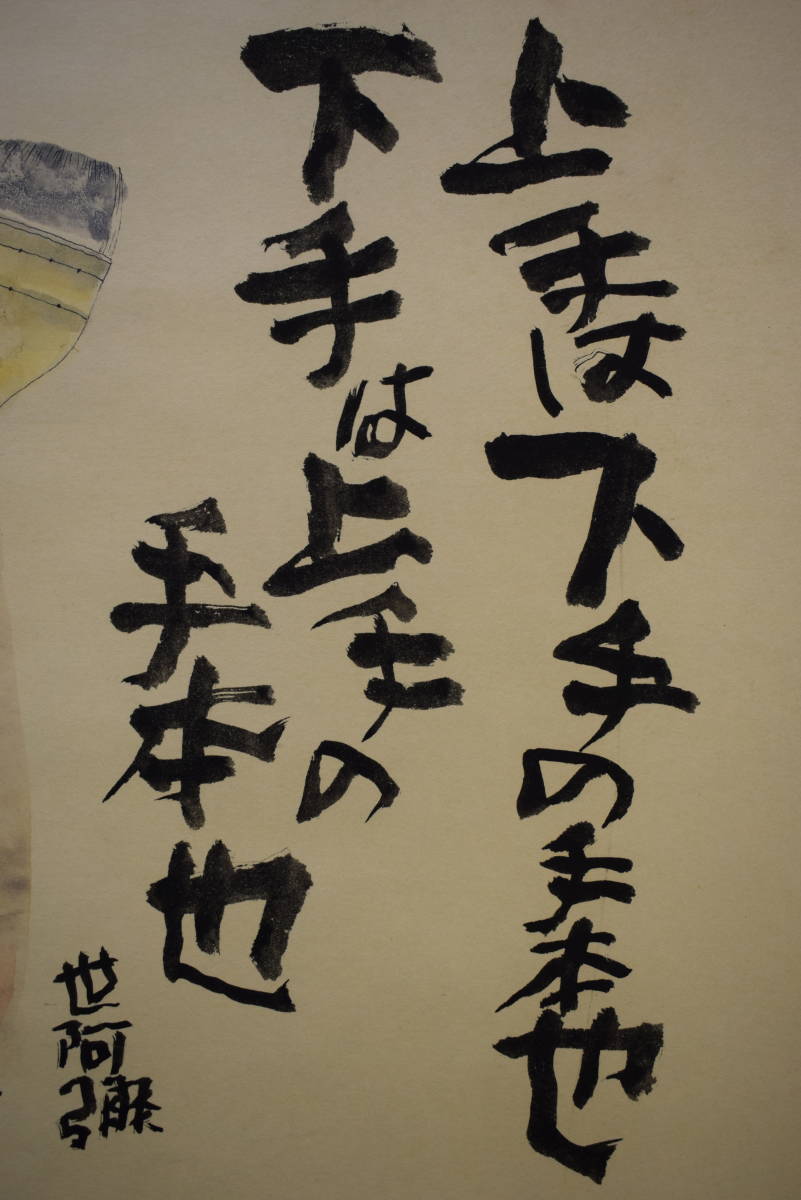 上手は下手の手本也
下手は上手の
手本也
世阿彌